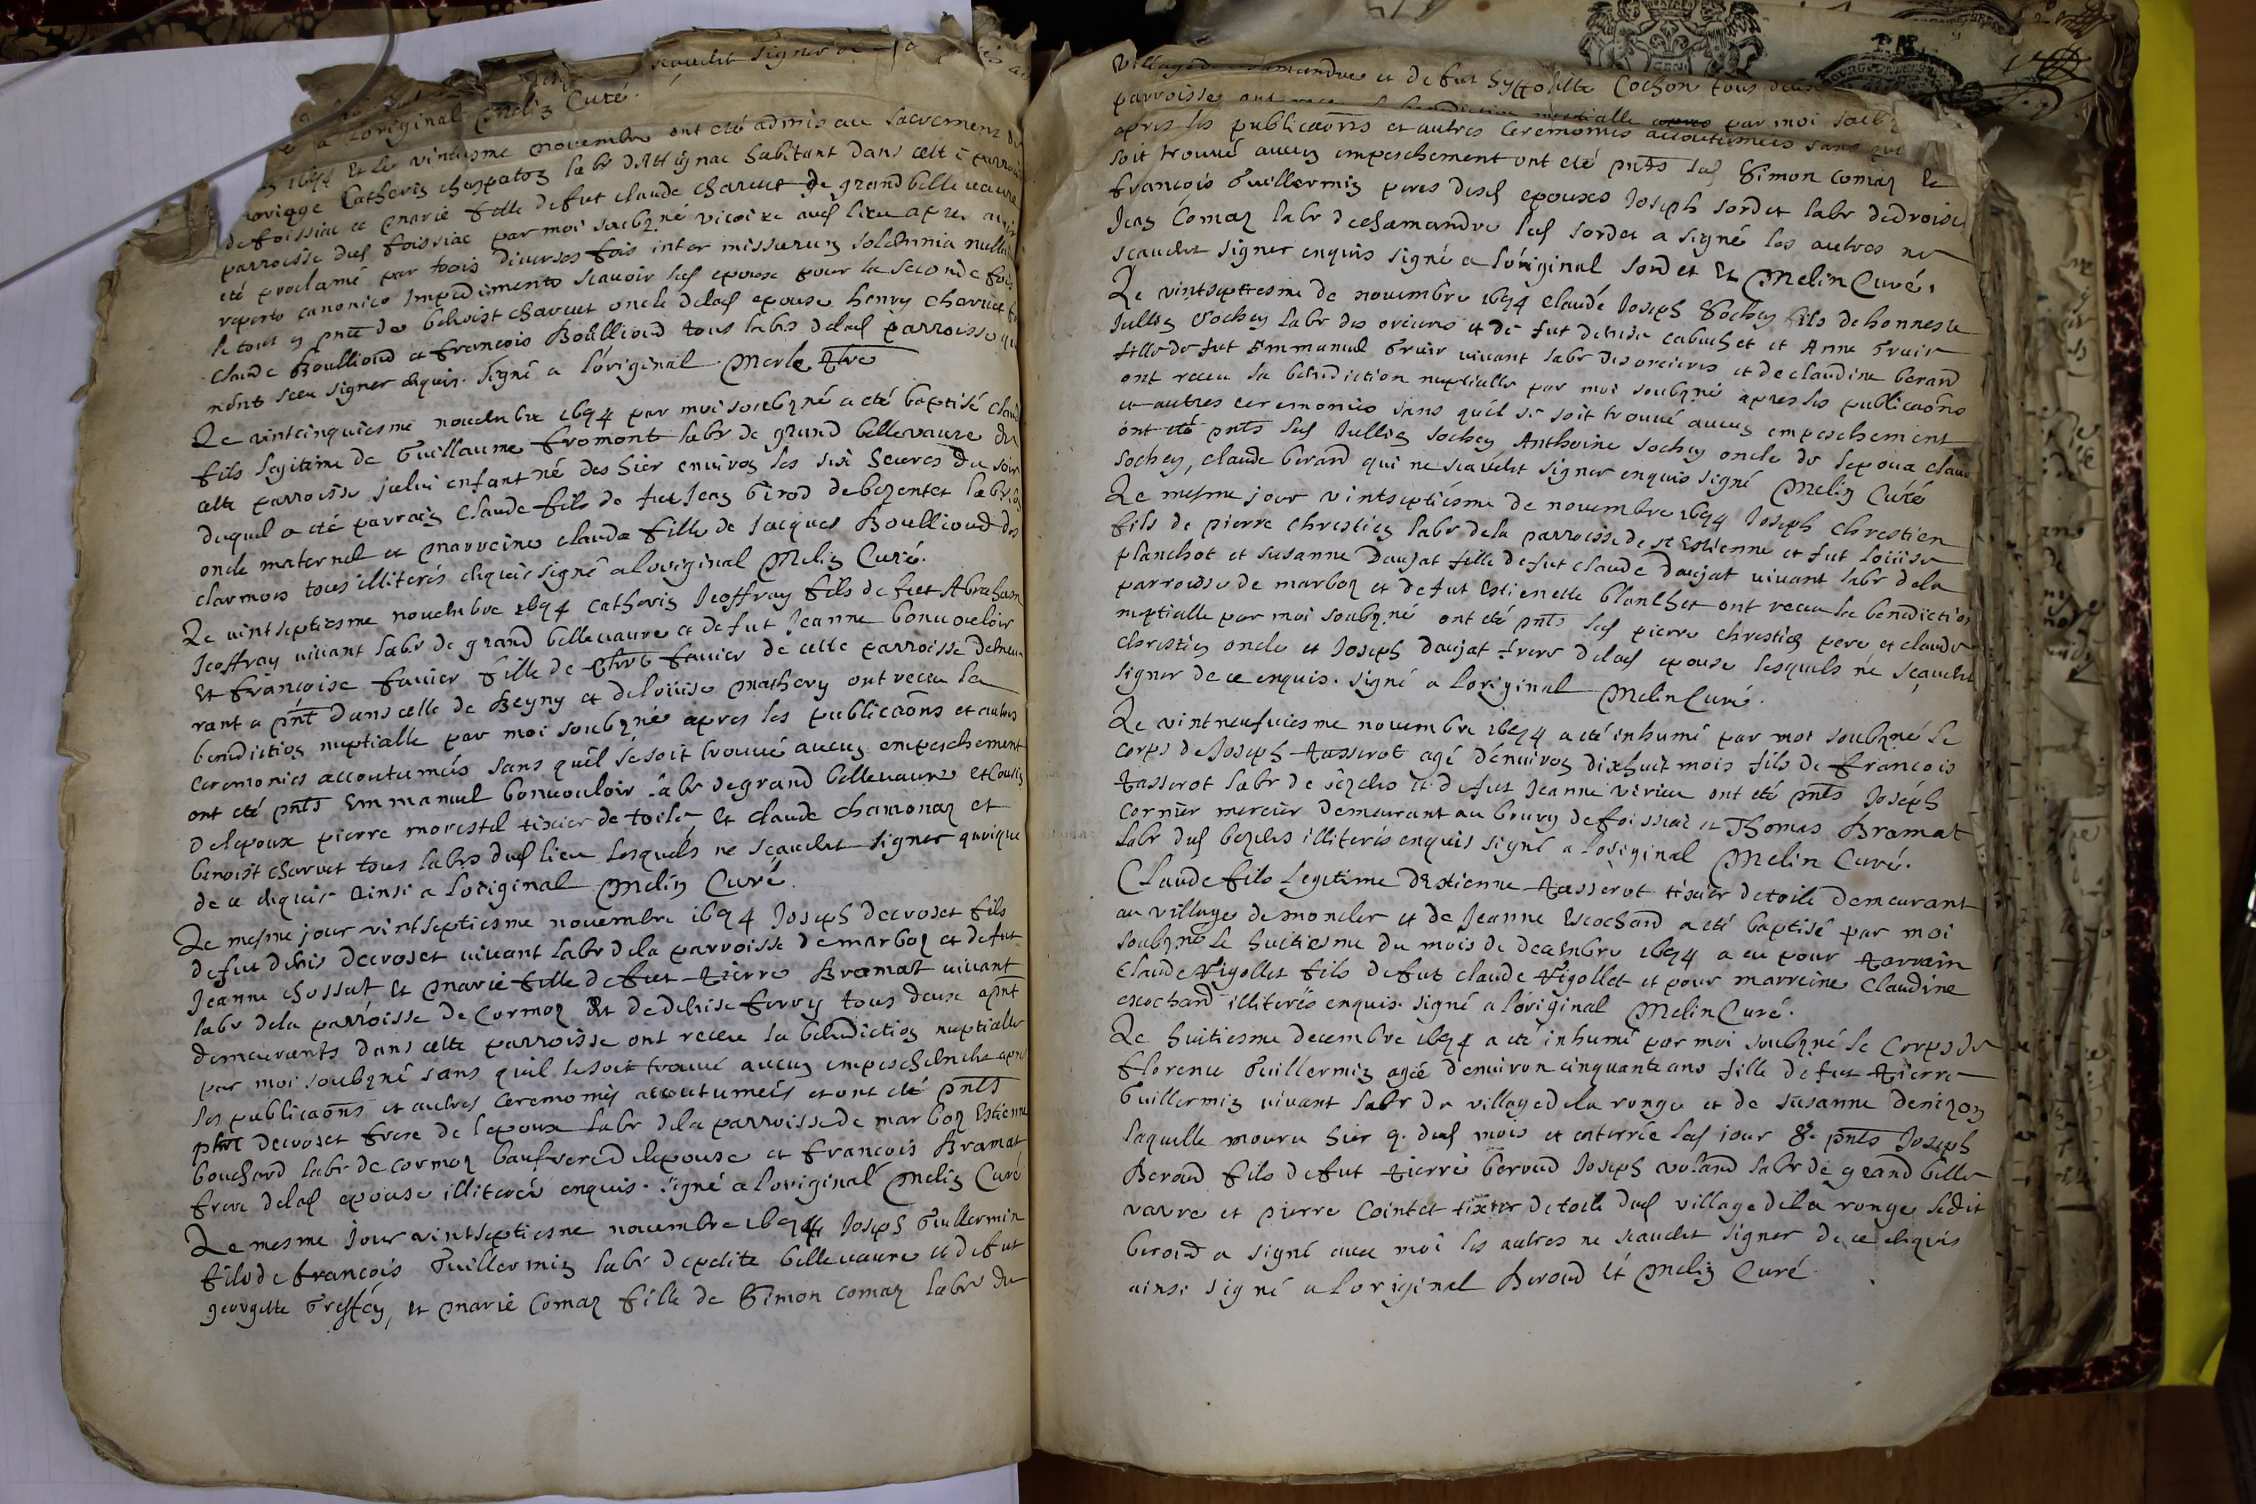 scauent signer
a Loriginal Melin Curé.
1694 Et le vintiesme novembre ont eté admis au sacrement
Catherin chapaton labr d'Attignac habitant dans cette parroi
de foissiac et Marie fille de fut claude charuet de grand bellevaure
parroisse dud foissiac par moi soubzné vicaire aud lieu apres avoir
eté proclamé par trois diverses fois inter missarum solemnia nullo
reperto canonico Impedimento scavoir led epoux pour la seconde fois
le tout en pnce de benoist charuet oncle delad epouse henry charuet
claude Boullioud et francois Boullioud tous labrs delad parroisse qui
n'ont sceu signer enquis. signé a l'original Merle ptre
Le vintcinquiesme novembre 1694 par moi soubzné a eté baptisé claude
fils legitime de Guillaume fromont labr de grand bellevaure de
cette parroisse jceluy enfant né des hier environ les six heures du soir
duquel a eté parrain claude fils de fut Jean Girod de bezentet labr
oncle maternel et marreine clauda fille de Jacques Boullioud des
clarmois tous illiterés enquis signé a loriginal Melin Curé.
Le vintseptiesme novembre 1694 catherin Jeoffray fils de fut Abraham
Jeoffray vivant labr de grand bellevaure et de fut Jeanne bonvouloir
Et francoise favier fille de phrt favier de cette parroisse demeu
rant a pnt dans celle de Beyny et de loüise Mathery ont receu la
benediction nuptialle par moi soubzné apres les publicaons et autres
ceremonies accoutumées sans quil se soit trouvé aucun empeschement
ont eté pnts Emmanuel bonvouloir labr de grand bellevaure et cousin
de lepoux pierre morestel tixier de toile Et claude chamonaz et
benoist charuet tous labrs dud lieu lesquels ne scauent signer quoique
de ce enquis Ainsi a loriginal Melin Curé.
Le mesme jour vintseptiesme novembre 1694 Joseph decroset fils
de fut denis decroset vivant labr de la parroisse de marboz et de fut
Jeanne chossat Et Marie fille de fut Pierre Bramat vivant
labr dela parroisse de Cormoz Et de denise ferry tous deux apnt
demeurants dans cette parroisse ont receu la benediction nuptialle
par moi soubzné sans quil se soit trouvé aucun empeschement apres
les publicaons et autres ceremonies accoutumeés et ont eté pnts
phrt decroset frere de lepoux labr dela parroisse de marboz Estienne
bouchard labr de cormoz beaufrere delepouse et francois Bramat
frere delad epouse illiterés enquis. signé a loriginal Melin Curé
Le mesme Jour vintseptiesme novembre 1694 Joseph Guillermin
fils de francois Guillermin labr de petite bellevaure et de fut
georgette Greffey, et Marie Comaz fille de Simon comaz labr du
village de chamandre et de fut hyppolitte Cochon tous deux
parroisse ont receu la benediction nuptialle par moi soubz
apres les publicaons et autres Ceremonies accoutumées sans qui
soit trouvé aucun empeschement ont eté pnts led Simon comaz Et
francois Guillermin peres desd epouses Joseph sordet labr de droise
Jean Comaz labr de chamandre led sordet a signé les autres ne
scauent signer enquis signé a loriginal sordet Et Melin Curé.
Le vintseptiesme de novembre 1694 claude Joseph Sochey fils de honneste
Jullien Sochey labr des oreiures et de fut denise cabuchet et Anne Gruir
fille de fut Emmanuel Gruir vivant labr des oreiures et de claudine berard
ont receu la benediction nuptialle par moi soubzné apres les publicaons
et autres ceremonies sans quil se soit trouvé aucun empeschement
ont eté pnts led Jullien sochey Anthoine sochey oncle de lepoux claude
sochey, claude berard qui ne scavent signer enquis signé Melin Curé
Le mesme jour vintseptiesme de novembre 1694 Joseph chrestien
fils de pierre chrestien labr dela parroisse de st Estienne et fut loüise
planchot et susanne daujat fille de fut claude daujat vivant labr dela
parroisse de marboz et de fut Estienette blanchet ont receu la benediction
nuptialle par moi soubzné ont eté pnts led pierre chrestien pere et claude
chrestien oncle et Joseph daujat frere delad epouse lesquels ne scauent
signer de ce enquis. signé a loriginal Melin Curé.
Le vintneufviesme novembre 1694 a eté inhumé par moi soubzné le
corps de Joseph Passerot agé d'environ dixhuit mois fils de francois
Passerot labr de bezeles et de fut Jeanne virieu ont eté pnts Joseph
cornier mercier demeurant au bourg de foissiat et Thomas Bramat
labr dud bezeles illiterés enquis signé a loriginal Melin Curé.
Claude fils Legitime d'Estienne Passerot tixier de toile demeurant
au village de moncler et de Jeanne Escochard a eté baptisé par moi
soubzné le huitiesme du mois de decembre 1694 a eu pour Parrain
claude Vigollet fils de fut claude Vigollet et pour marreine claudine
escochard illiterés enquis. signé a loriginal Melin Curé.
Le huitiesme decembre 1694 a eté inhumé par moi soubzné le Corps de
florence Guillermin ageé d'environ cinquante ans fille de fut Pierre
Guillermin vivant labr du village de la ronge et de susanne denizon
laquelle mouru hier 7. dud mois et enterrée led jour 8e. pnts Joseph
Beroud fils de fut Pierre beroud Joseph voland labr de grand belle
vavre et pierre Cointet tixier de toile dud village de la ronge ledit
beroud a signé avec moi les autres ne scauent signer de ce enquis
ainsi signé a loriginal Beroud Et Melin Curé